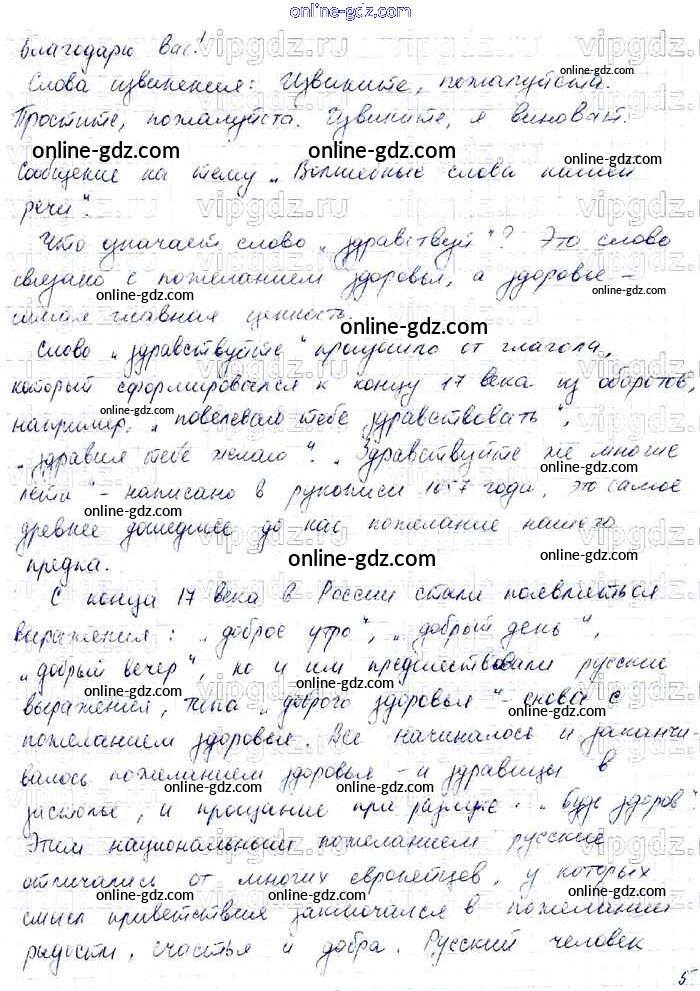 online-gdz.com
Благодарю вас!
Слова извинения: Извините, пожалуйста.
Простите, пожалуйста. Извините, я виноват.
Сообщение на тему „Волшебные слова нашей
речи".
Что означает слово „здравствуй"? Это слово
связано с пожеланием здоровья, а здоровье –
самая главная ценность.
Слово „здравствуйте" произошло от глагола,
который сформировался к концу 17 века из оборотов,
например, „повелеваю тебе здравствовать",
„здравия тебе желаю". „Здравствуйте же многие
лета" - написано в рукописи 1057 года, это самое
древнее дошедшее до нас пожелание нашего
предка.
С конца 17 века в России стали появляться
выражения: „доброе утро", „добрый день",
„добрый вечер", но и им предшествовали русские
выражения, типа „доброго здоровья" - снова с
пожеланием здоровья. Все начиналось и заканчи-
валось пожеланием здоровья - и здравицы в
застолье, и прощание при разлуке: „Будь здоров"
Этим национальным пожеланием русские
отличались от многих европейцев, у которых
смысл приветствия заключался в пожелании
радости, счастья и добра. Русский человек
5